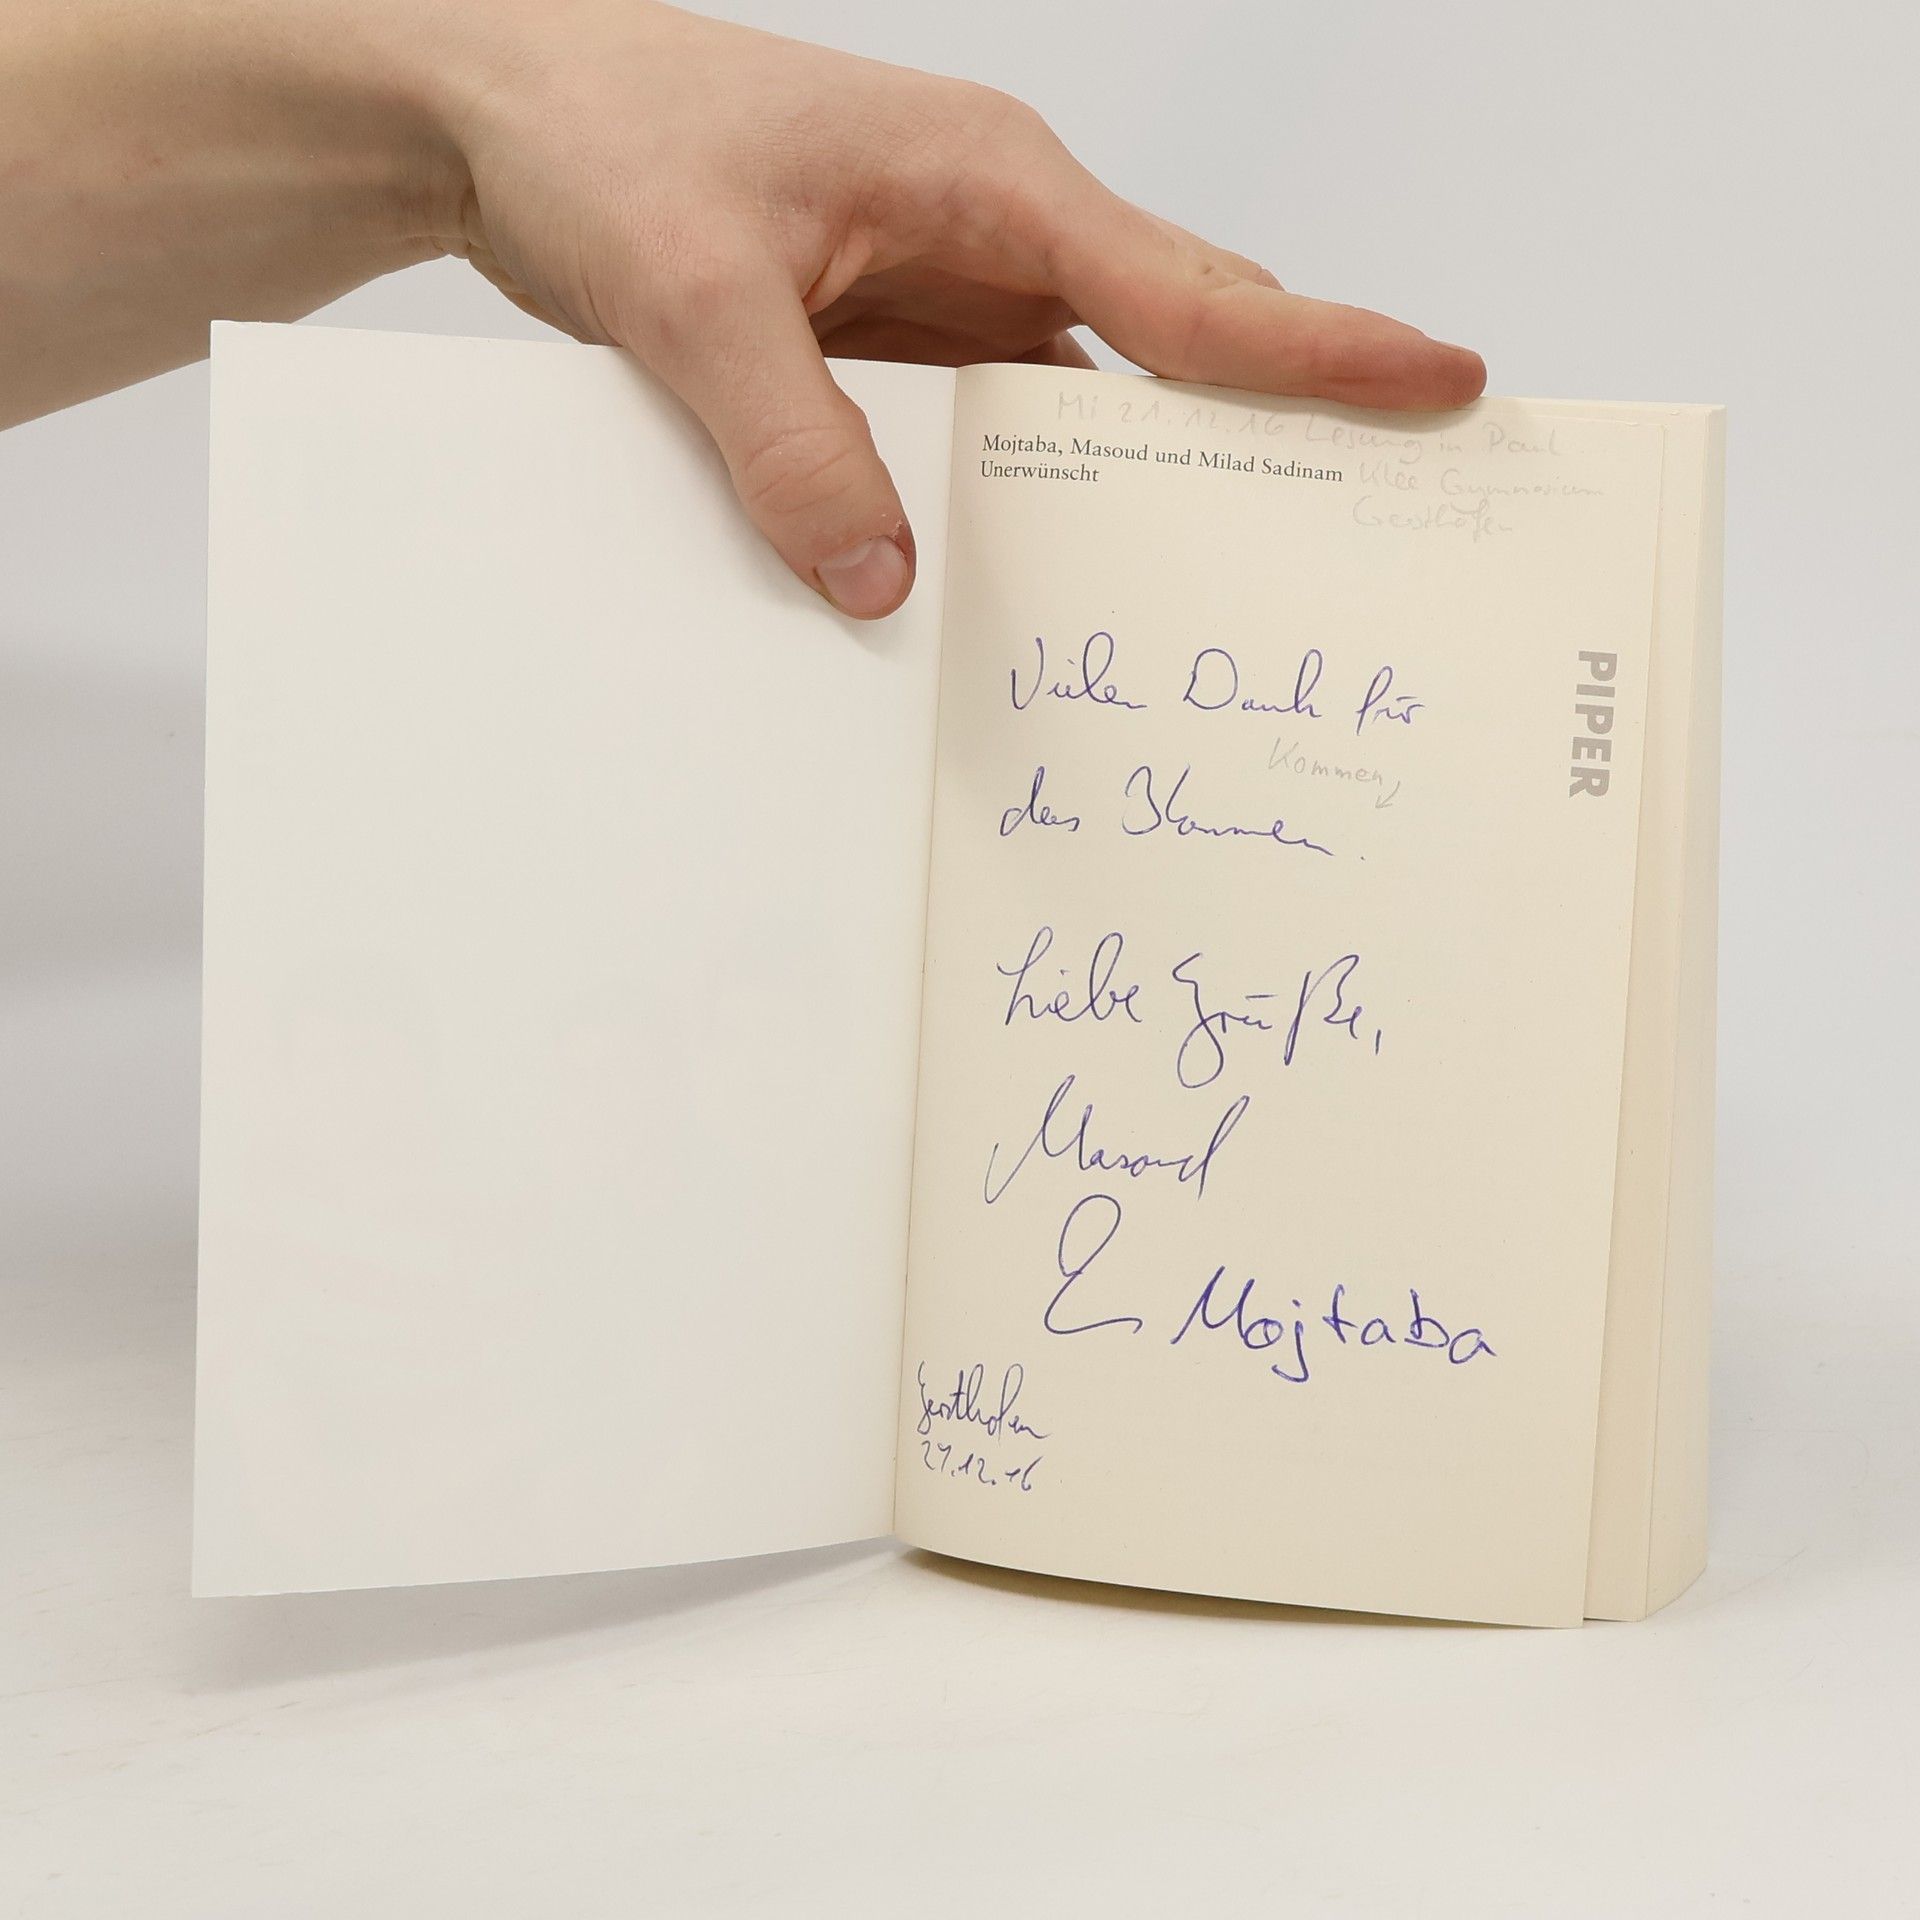 Mi 21.12.16 Lesung in Paul
Mojtaba, Masoud und Milad Sadinam
Klee Gymnasium
Unerwünscht
Gersthofen
PIPER
Vielen Dank für
Kommen
das Kommen.
Liebe Grüße,
Masoud
Mojtaba
Gersthofen
21.12.16